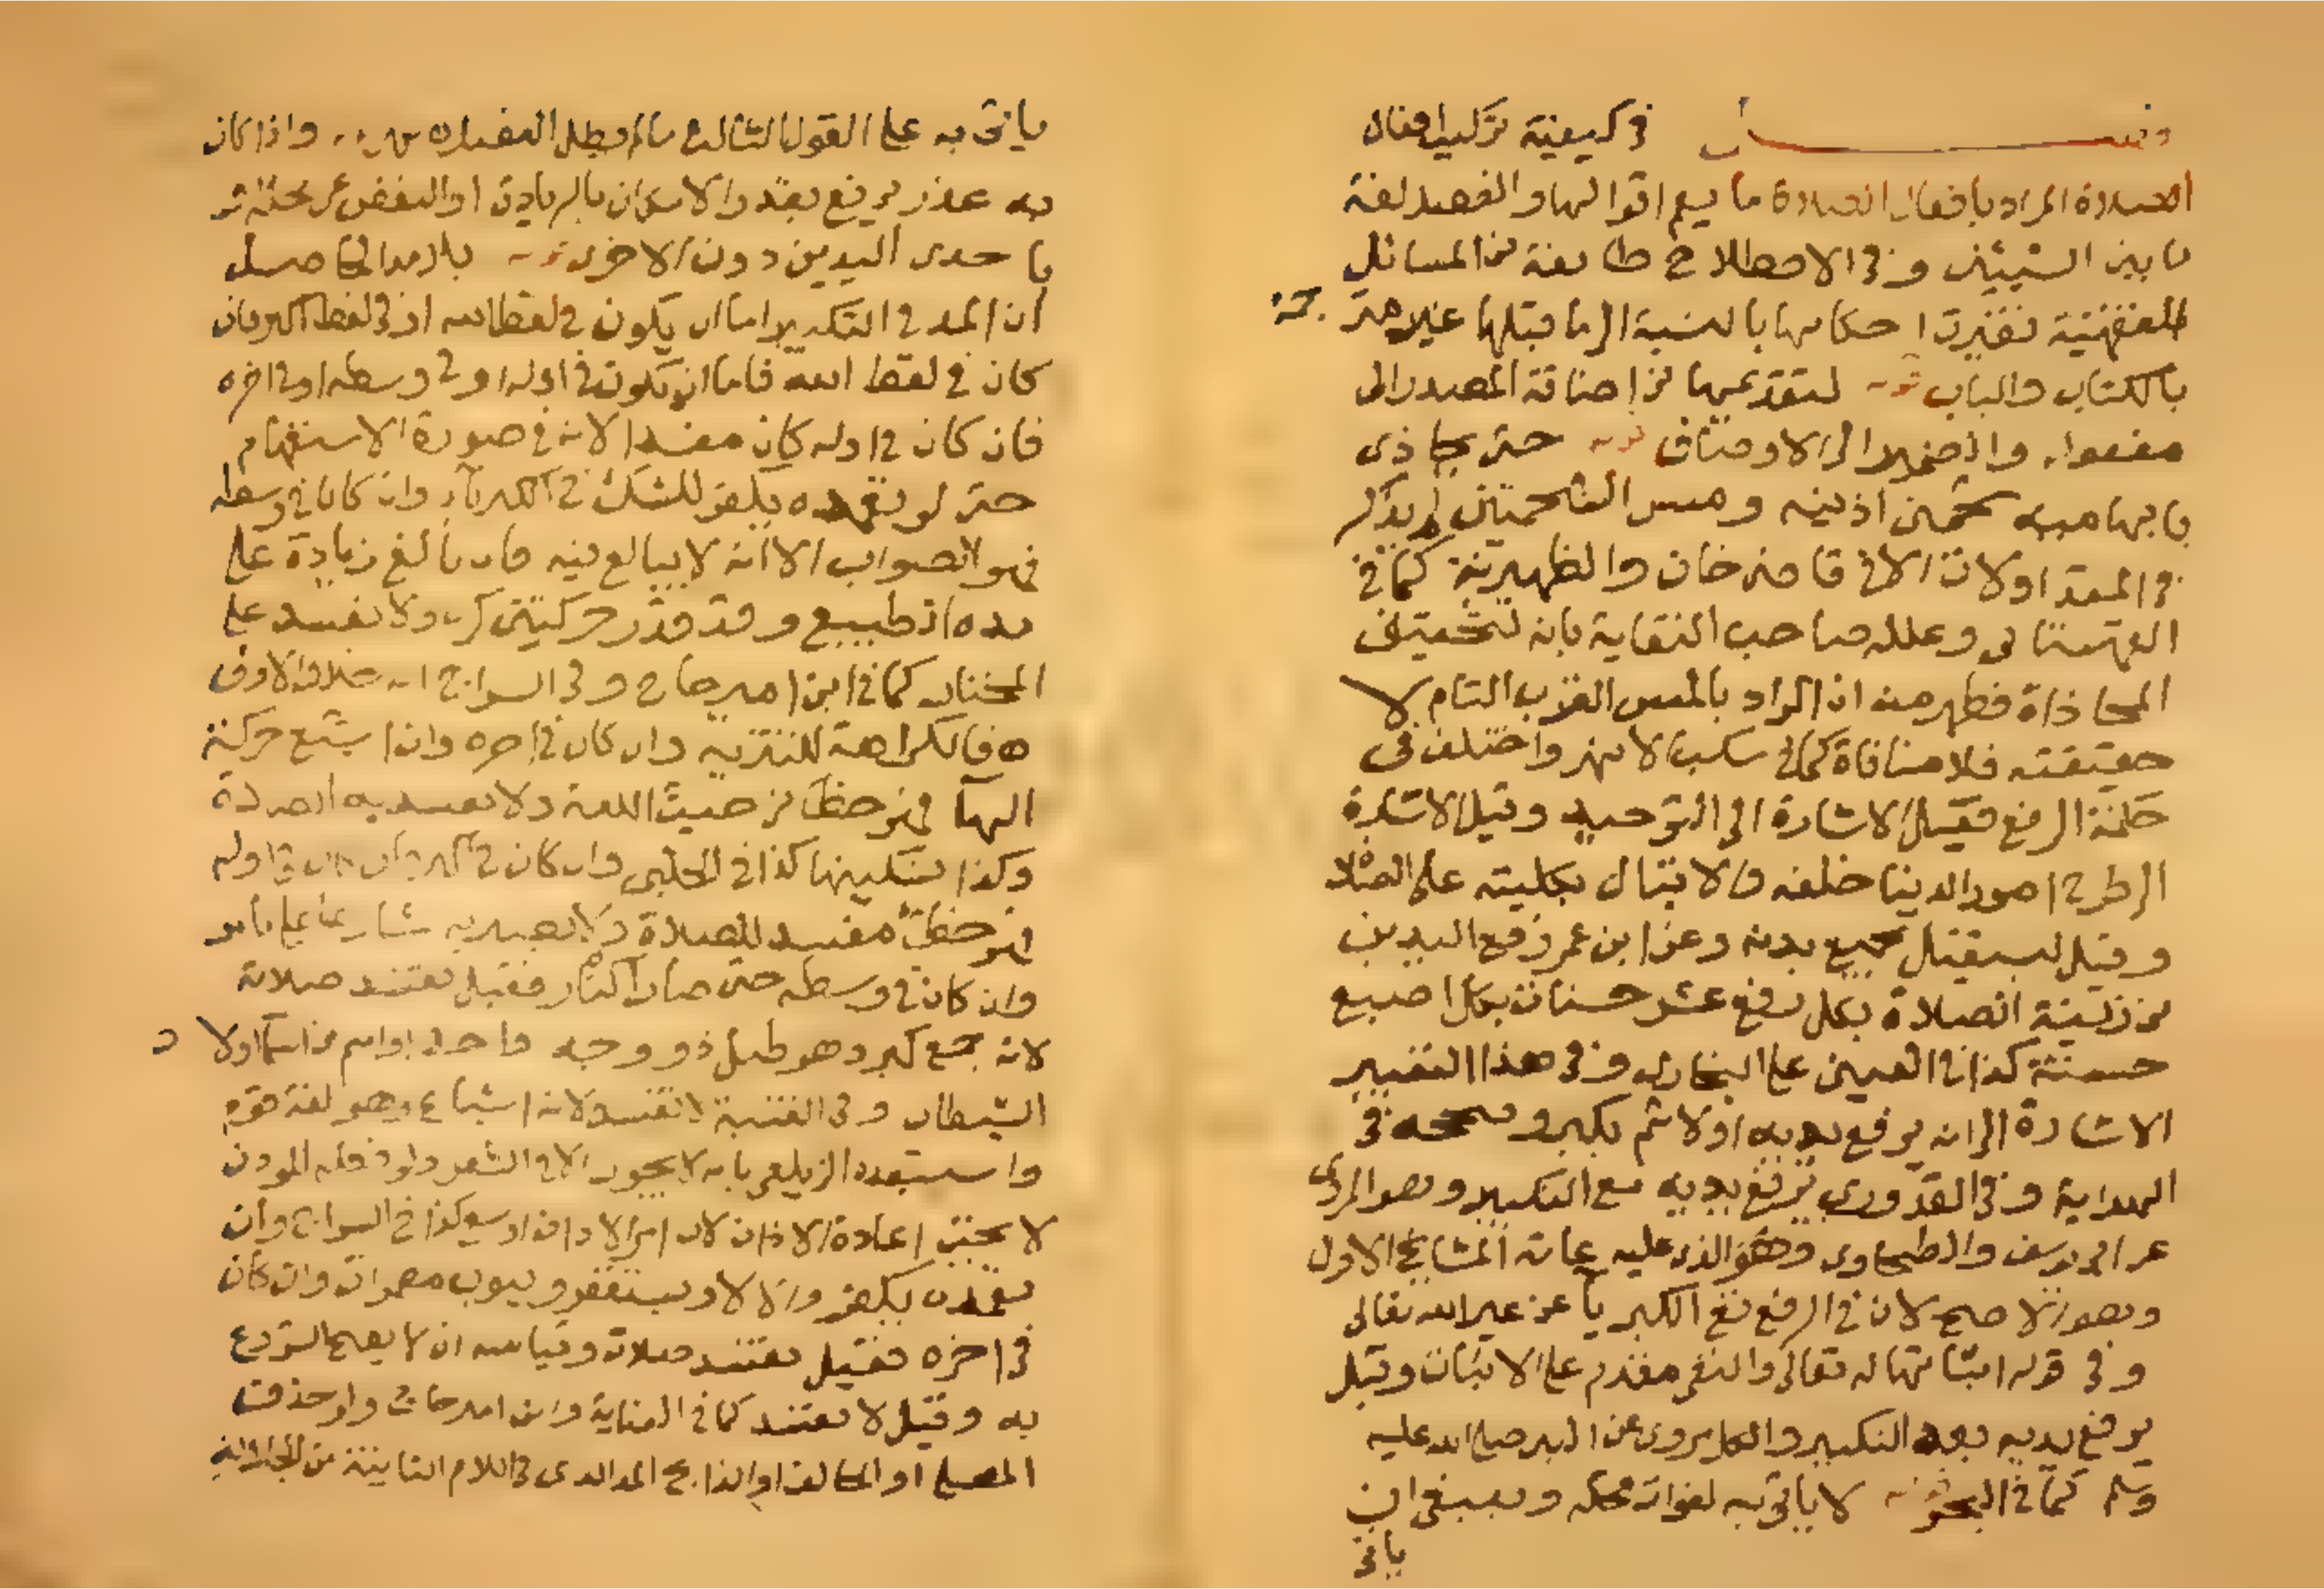 فصل في كيفية تركيب افعال
الصلاة المراد بافعال الصلاة ما يعم اقوالها والفصل لغة
ما بين الشيئين وفي الاصطلاح طائفة من المسائل
الفقهية تغيرت احكامها بالنسبة الى ما قبلها غير مترجمة
بالكتاب والباب قوله لتقدعيها من اضافة المصدر الى
مفعوله والضمير الى الاوصاف قوله حتى يحاذى
بابهاميه شحمتى اذنيه ومس الشحمتين لم يذكر
في المتداولات الا في قاضى خان والظهيرية كما في
القهستانى وعلله صاحب النقاية بانه لتحقيق
المحاذاة فظهر منه ان المراد بالمس القرب التام لا
حقيقته فلا منافاة كما في سكب الانهر واختلف في
حكمة الرفع فقيل الاشارة الى التوحيد وقيل الاشارة
الى طرح امور الدنيا خلفه والاقبال بكليته على الصلاة
وقيل ليستقبل بجميع بدنه وعن ابن عمر رفع اليدين
من زينة الصلاة بكل رفع عشر حسنات بكل اصبع
حسنة كذا في العينى على البخارى وفي هذا التعبير
الاشارة الى انه يرفع يديه اولا ثم يكبر وصححه في
الهداية وفي القدورى يرفع يديه مع التكبير وهو المروى
عن ابى يوسف والطحاوى وهو الذى عليه عامة المشايخ الاول
وهو الاصح لان في الرفع نفى الكبرياء عن غير الله تعالى
وفي قوله اثباتها له تعالى والنفى مقدم على الاثبات وقيل
يرفع يديه بعد التكبير والكل مروى عن النبى صلى الله عليه
وسلم كما في البحر قوله لا ياتى به لفوات محله وينبغى ان
ياتى
ياتى به على القول الثالث ما لم يطل الفصل واذا كان
به عذر يرفع بقدر الامكان بالزيادة او النقص
باحدى اليدين دون الاخرى قوله بلا مد الحاصل
ان المد في التكبير اما ان يكون في لفظ الله او في لفظ اكبر فان
كان في لفظ الله فاما ان يكون في اوله او في وسطه او في اخره
فان كان في اوله كان مفسدا لانه في صورة الاستفهام
حتى لو تعمده يكفر للشك في الكبرياء وان كان في وسطه
فهو الصواب الا انه لا يبالغ فيه فان بالغ زيادة على
مده الطبيعى وقدر حركتين كره ولا تفسد على
المختار كما في ابن امير حاج وفي السراج انه خلاف الاولى
ه فالكراهة للتنزيه وان كان في اخره وان اشبع حركة
الهآ فهو خطأ من حيث اللغة ولا تفسد به الصلاة
وكذا تسكينها كذا في الحلبى وان كان في اكبر فان كان في اوله
فهو خطأ مفسد للصلاة ولا يصير به شارعا على ما مر
وان كان في وسطه حتى صار اكبار فقيل تفسد صلاته
لانه جمع كبر وهو طبل ذو وجه واحد او اسم من اسماء اولاد
الشيطان وفي القنية لا تفسد لانه اشباع وهو لغة قوم
واستبعده الزيلعى بانه لا يجوز الا في الشعر ولو فعله المؤذن
لا يجب اعادة الاذان لان امر الاذان اوسع كذا في السراج وان
تعمده يكفر والا لا ويستغفر ويتوب وان كان
في اخره فقيل تفسد صلاته وقياسه ان لا يصح الشروع
به وقيل لا تفسد كما في العناية وابن امير حاج ولو حذف
المصلى او الحالف او الذابح المد الذى في اللام الثانية من الجلالة